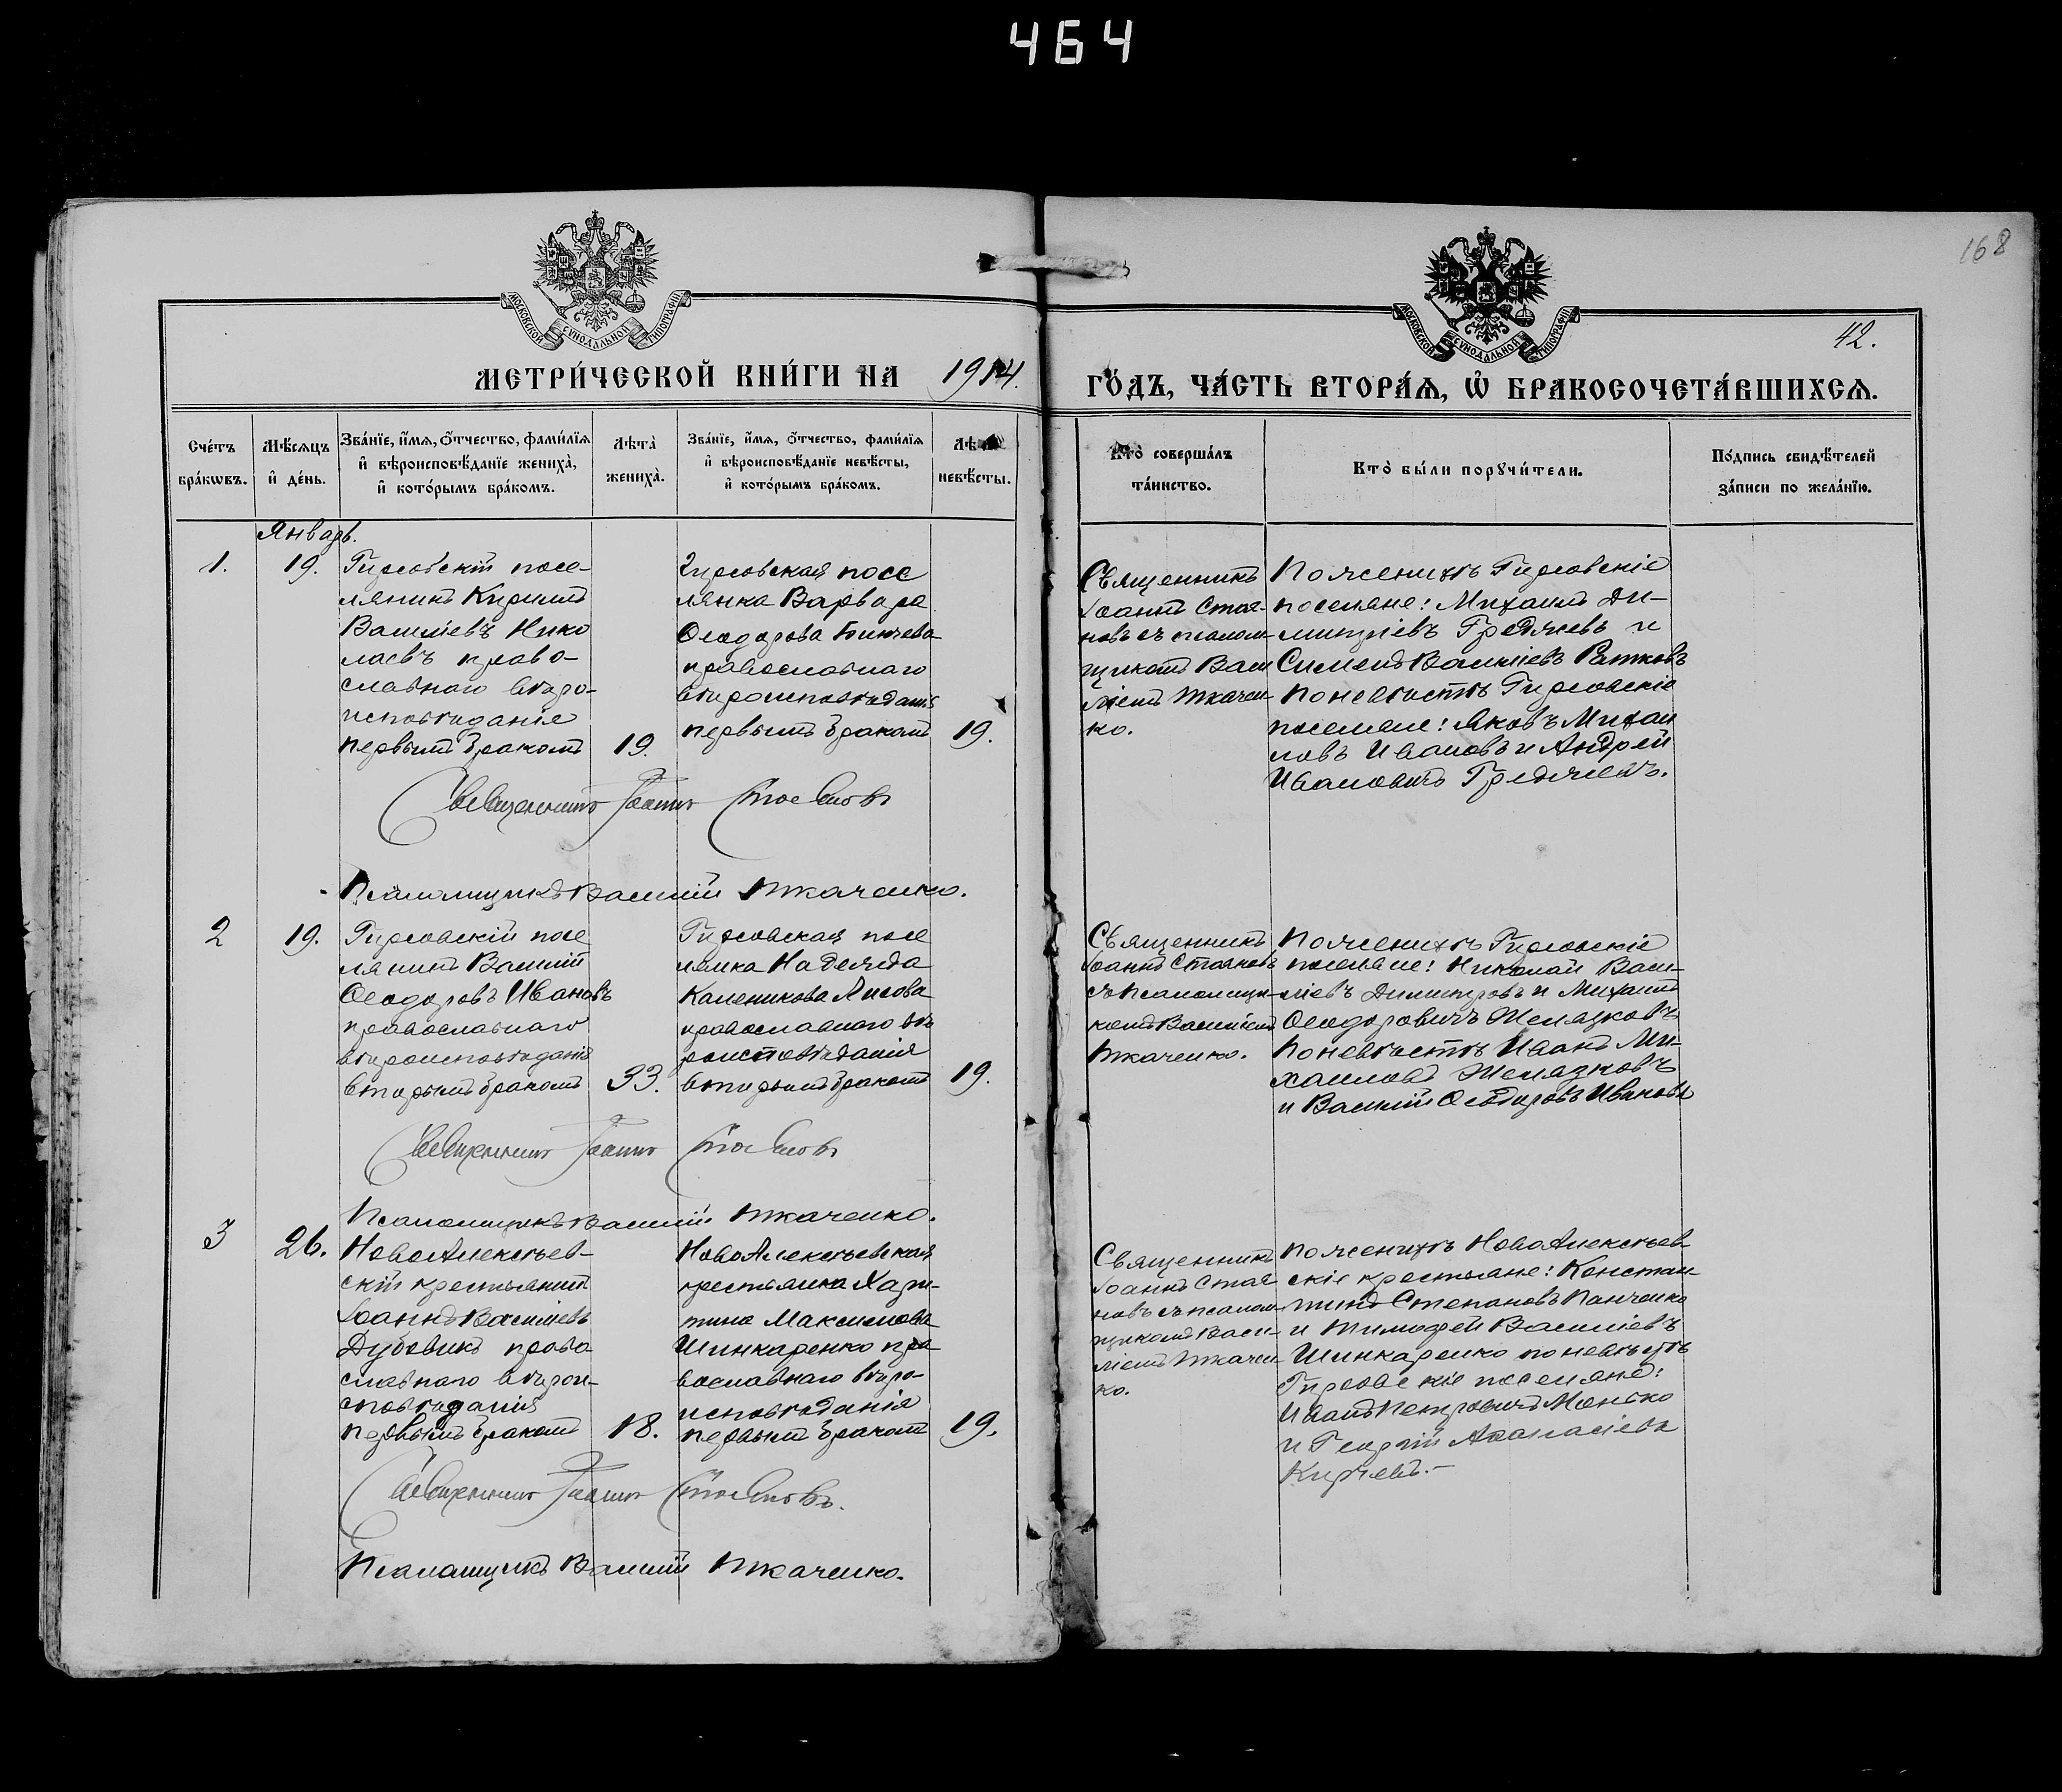 464
168
42.
МОСКОВСКОЙ СѴНОДАЛЬНОЙ ТИПОГРАФІИ
МОСКОВСКОЙ СѴНОДАЛЬНОЙ ТИПОГРАФІИ
МЕТРИ́ЧЕСКОЙ КНИ́ГИ НА 1914.
ГО́ДЪ, ЧА́СТЬ ВТОРА́Ѧ, Ѽ БРАКОСОЧЕТА́ВШИХСѦ.
Сче́тъ бра́кѡвъ.
Мѣ́сѧцъ и҆ де́нь.
Зва́нїе, и҆́мѧ, ѻ҆́тчество, фами́лїѧ
и҆ вѣроисповѣ́данїе жениха̀,
и҆ кото́рымъ бра́комъ.
Лѣта̀ жениха̀.
Зва́нїе, и҆́мѧ, ѻ҆́тчество, фами́лїѧ
и҆ вѣроисповѣ́данїе невѣ́сты,
и҆ кото́рымъ бра́комъ.
невѣ́сты.
Кто̀ соверша́лъ
та́инство.
Кто̀ бы́ли порꙋчи́тели.
По́дпись свидѣ́телей
за́писи по жела́нїю.
Январь.
1.
19.
Гирсовскій посе-
лянинъ Кириллъ
Василіевъ Нико
лаевъ право-
славнаго вѣро-
исповѣданіе
первымъ бракомъ
19.
Гирсовская посе
лянка Варвара
Ѳеодорова Бинчева
православнаго
вѣроисповѣданія
первымъ бракомъ
19.
Священникъ
Іоаннъ Стоя-
новъ съ псалом-
щикомъ Васи
ліемъ Ткачен-
ко.
По женихѣ Гирсовскіе
поселяне: Михаилъ Ди-
митріевъ Гредячевъ и
Симеонъ Василіевъ Ратковъ
По невѣстѣ Гирсовскіе
поселяне: Яковъ Михаи
ловъ Ивановъ и Андрей
Ивановичъ Гредячевъ.
Священникъ Іоаннъ Стояновъ
Псаломщикъ Василій Ткаченко.
2
19.
Гирсовскій посе
лянинъ Василій
Ѳеодоровъ Ивановъ
православнаго
вѣроисповѣданія
вторымъ бракомъ
33.
Гирсовская посе
лянка Надежда
Каленикова Лисова
православнаго вѣ
роисповѣданія
вторымъ бракомъ
19.
Священникъ
Іоаннъ Стояновъ
съ псаломщи-
комъ Василіемъ
Ткаченко.
По женихѣ Гирсовскіе
поселяне: Николай Васи-
ліевъ Димитровъ и Михаилъ
Ѳеодоровичъ Желязковъ
По невѣстѣ Иванъ Ми-
хаиловъ Желязковъ
и Василій Ѳеодоровъ Ивановъ
Священникъ Іоаннъ Стояновъ
Псаломщикъ Василій Ткаченко.
3
26.
НовоАлексѣев-
скій крестьянинъ
Іоаннъ Василіевъ
Дубовикъ право
славнаго вѣрои-
сповѣданія
первымъ бракомъ
18.
НовоАлексѣевская
крестьянка Хари-
тина Максимова
Шинкаренко пра
вославнаго вѣро-
исповѣданія
первымъ бракомъ
19.
Священникъ
Іоаннъ Стоя
новъ съ псалом-
щикомъ Васи-
ліемъ Ткачен-
ко.
По женихѣ НовоАлексѣев
скіе крестьяне: Констан-
тинъ Степановъ Панченко
и Тимофей Василіевъ
Шинкаренко по невѣстѣ
Гирсовскіе поселяне:
Иванъ Петровичъ Монько
и Георгій Аѳанасіевъ
Кирчевъ.-
Священникъ Іоаннъ Стояновъ.
Псаломщикъ Василій Ткаченко.